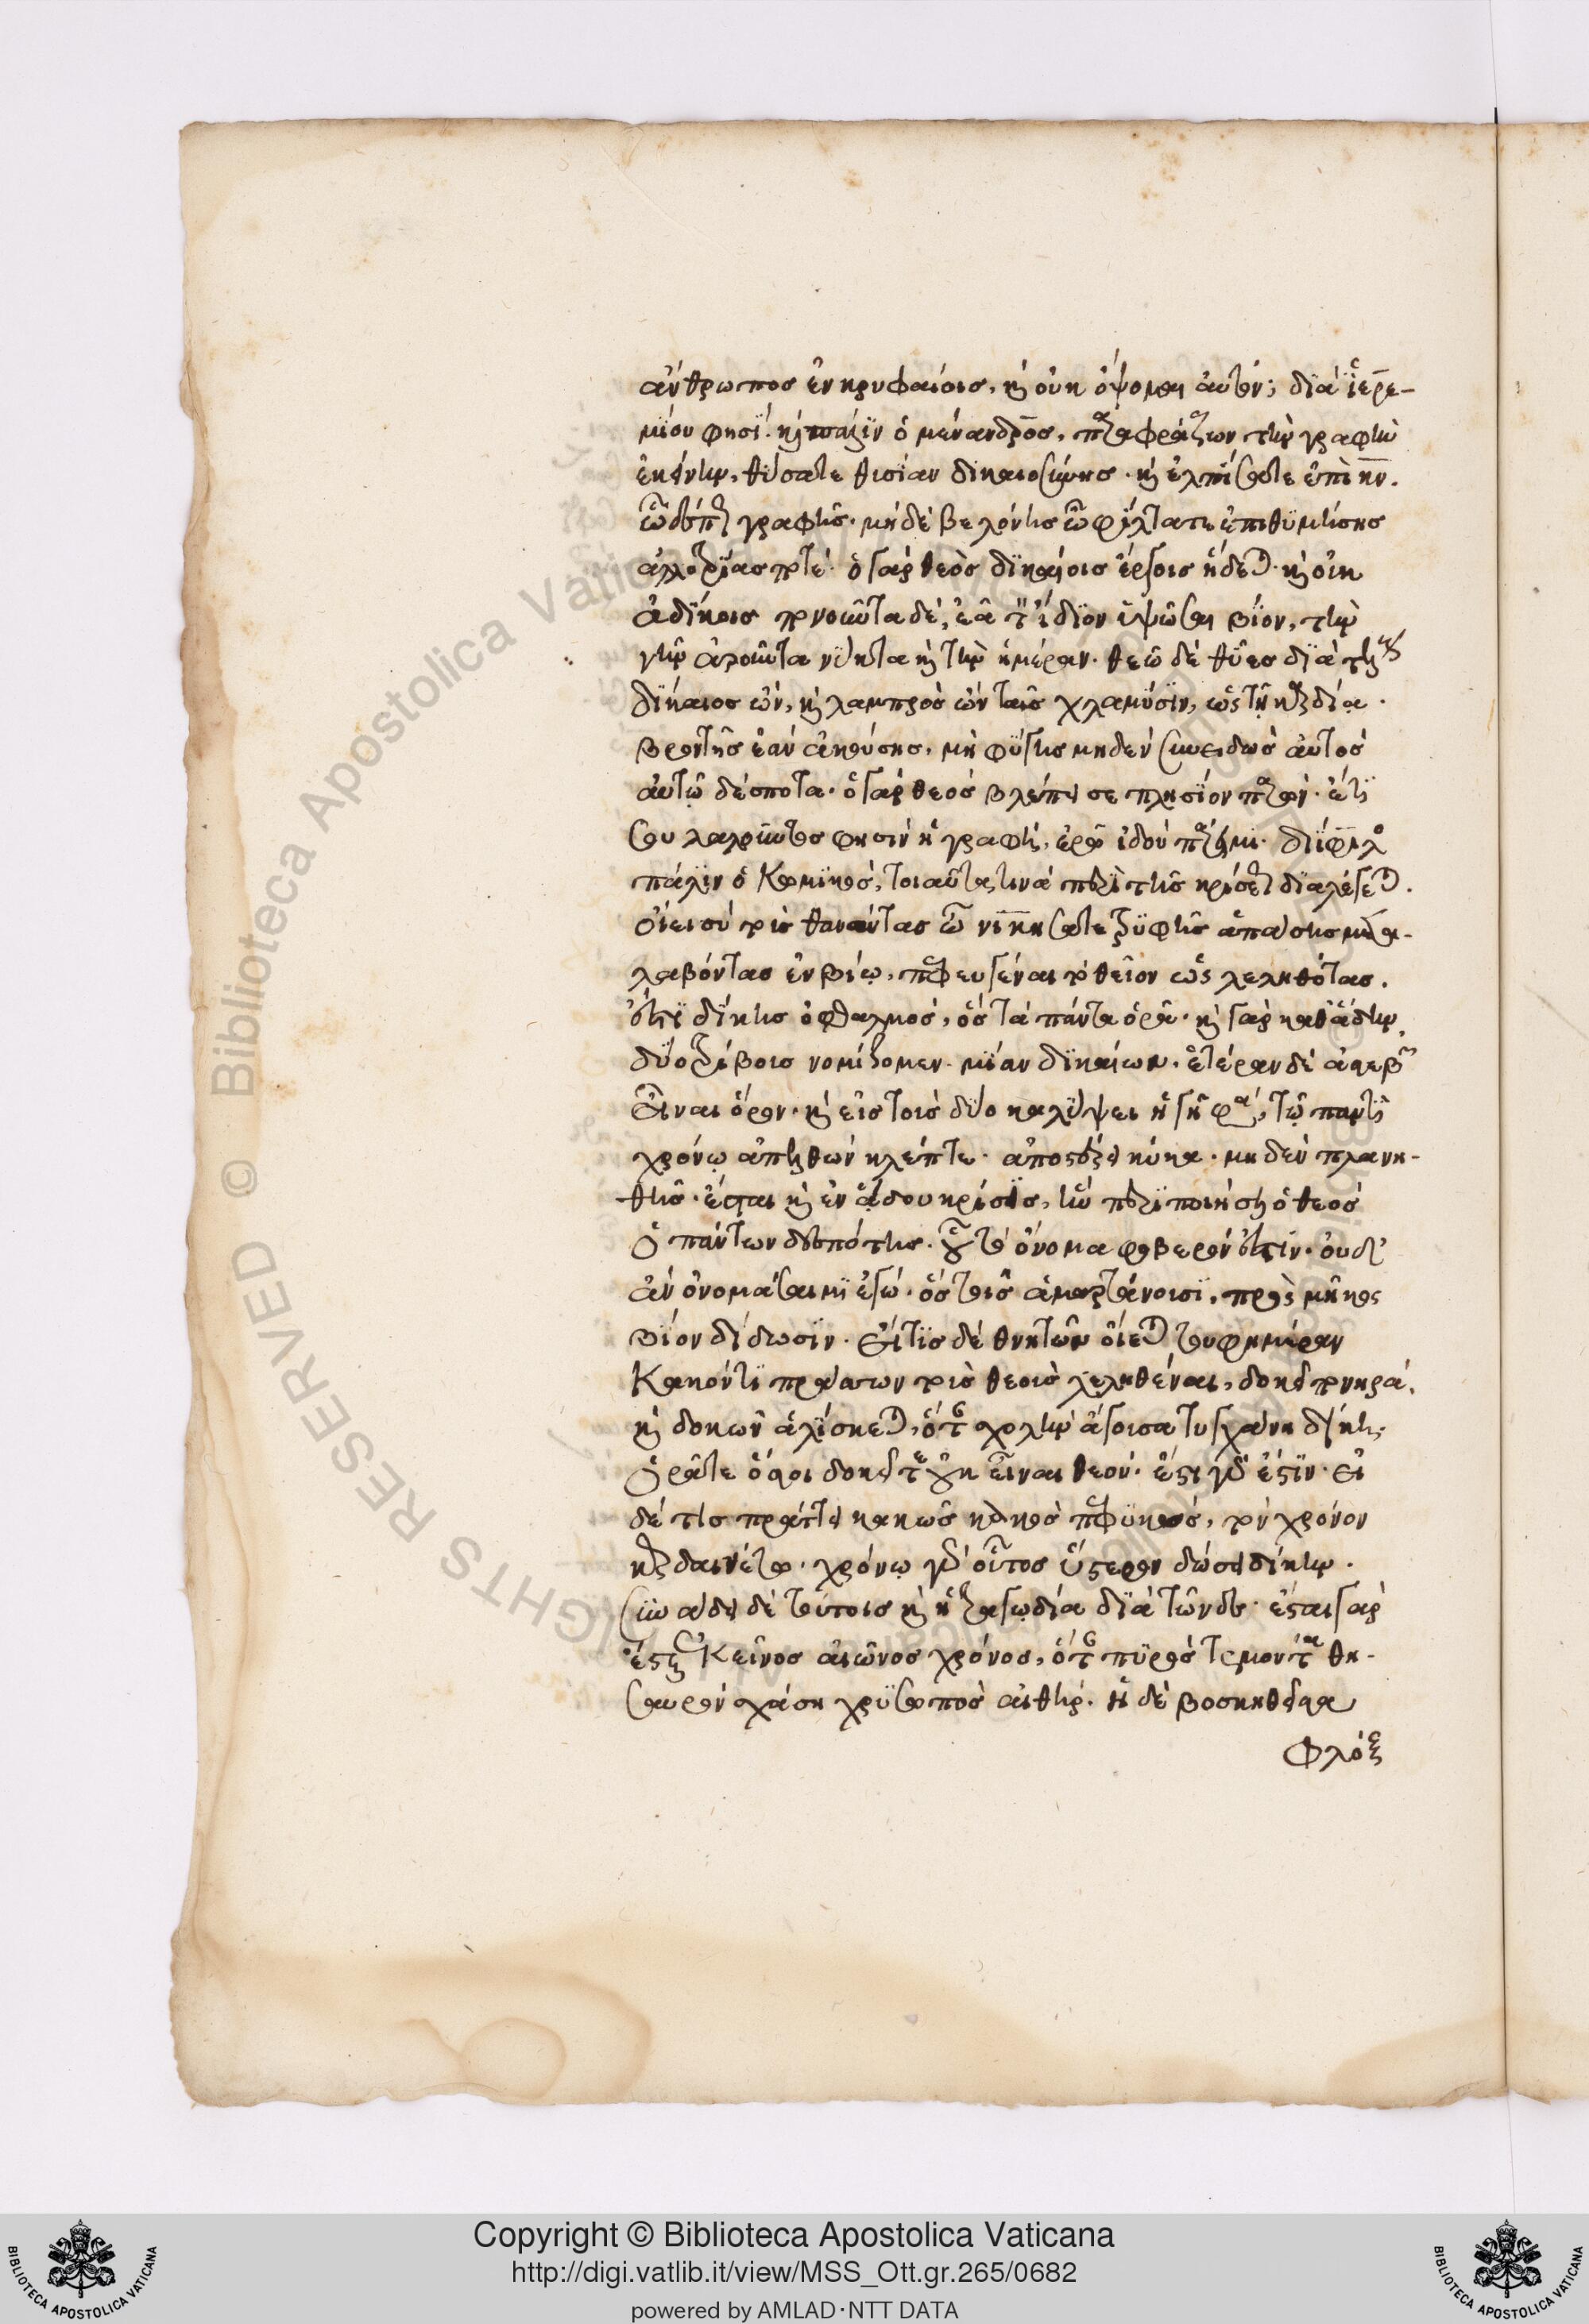 ἄνθρωπος ἐν κρυφαίοις, καὶ οὐκ ὄψομαι αὐτόν; διὰ ἱερε-
μίου φησί. καὶ πάλιν ὁ μένανδρος, παραφράζων τὴν γραφὴν
ἐκείνην, θύσατε θυσίαν δικαιοσύνης. καὶ ἐλπίσατε ἐπὶ κν.
γραφῆς. μὴ δὲ βελόνης ὦ φίλτατε ἐπιθυμήσης
ἀλλοτρίας ποτέ. ὁ γὰρ θεὸς δικαίοις ἔργοις ἥδεται. καὶ οὐκ
ἀδίκοις πονοῦντα δέ, ἐᾶ τὸν ἴδιον ὑψῶσαι βίον, τὴν
γῆν ἀροῦντα νύκτα καὶ τὴν ἡμέραν. θεῷ δὲ θῦε διὰ τέλους
δίκαιος ὤν, καὶ λαμπρὸς ὢν ταῖς χλαμύσιν, ὡς τῇ καρδίᾳ.
βροντῆς ἐὰν ἀκούσης, μὴ φύγης μηδὲν συνειδὼς αὐτὸς
αὐτῷ δέσποτα. ὁ γὰρ θεὸς βλέπει σε πλησίον παρών. ἔτι
σου λαλοῦντος φησὶν ἡ γραφή, ἐρῶ ἰδοὺ πάρειμι. δίφιλος
πάλιν ὁ Κωμικός, τοιαῦτά τινα περὶ τῆς κρίσεως διαλέγεται.
οἴει σὺ τοὺς θανόντας ὦ νικήσατε τρυφῆς ἁπάσης μετα-
λαβόντας ἐν βίῳ, πεφευγέναι τὸ θεῖον ὡς λεληθότας.
ἔστι δίκης ὀφθαλμός, ὃς τὰ πάντα ὁρᾷ. καὶ γὰρ καθ' ἅδην,
δύο τρίβους νομίζομεν. μίαν δικαίων. ἑτέραν δὲ ἀσεβῶν
εἶναι ὁδόν. καὶ εἰ τοὺς δύο καλύψει ἡ γῆ φασί, τῷ παντὶ
χρόνῳ ἀπελθὼν κλέπτε. ἀποστέρει κύκα. μηδὲν πλανη-
θῇς. ἔσται καὶ ἐν ᾅδου κρίσις, ἣν περ ποιήσει ὁ θεὸς
ὁ πάντων δεσπότης. οὗ τὸ ὄνομα φοβερὸν ἐστίν. οὐδ'
ἂν ὀνομάσαιμι ἐγώ. ὃς τοῖς ἁμαρτάνουσι, πρὸς μῆκος
βίον δίδωσιν. εἴ τις δὲ θνητῶν οἴεται τουφημέραν
Κακόν τι πράσσων τοὺς θεοὺς λεληθέναι, δοκεῖ πονηρά,
καὶ δοκῶν ἁλίσκεται, ὅταν σχολὴν ἄγουσα τυγχάνη δίκη;
ὁρᾶτε ὅσοι δοκεῖτε οὐκ εἶναι θεόν. ἔστι γὰρ ἔστιν. εἰ
δέ τις πράττει κακῶς κακὸς πεφυκώς, τὸν χρόνον
κερδαινέτω. χρόνῳ γὰρ οὗτος ὕστερον δώσει δίκην.
συνᾴδει δὲ τούτοις καὶ ἡ τραγῳδία διὰ τῶνδε. ἔσται γὰρ
ἔσται Κεῖνος αἰῶνος χρόνος, ὅταν πυρὸς γέμοντα θη-
σαυρὸν σχάση χρυσωπὸς αἰθήρ. ἡ δὲ βοσκηθεῖσα
φλόξ